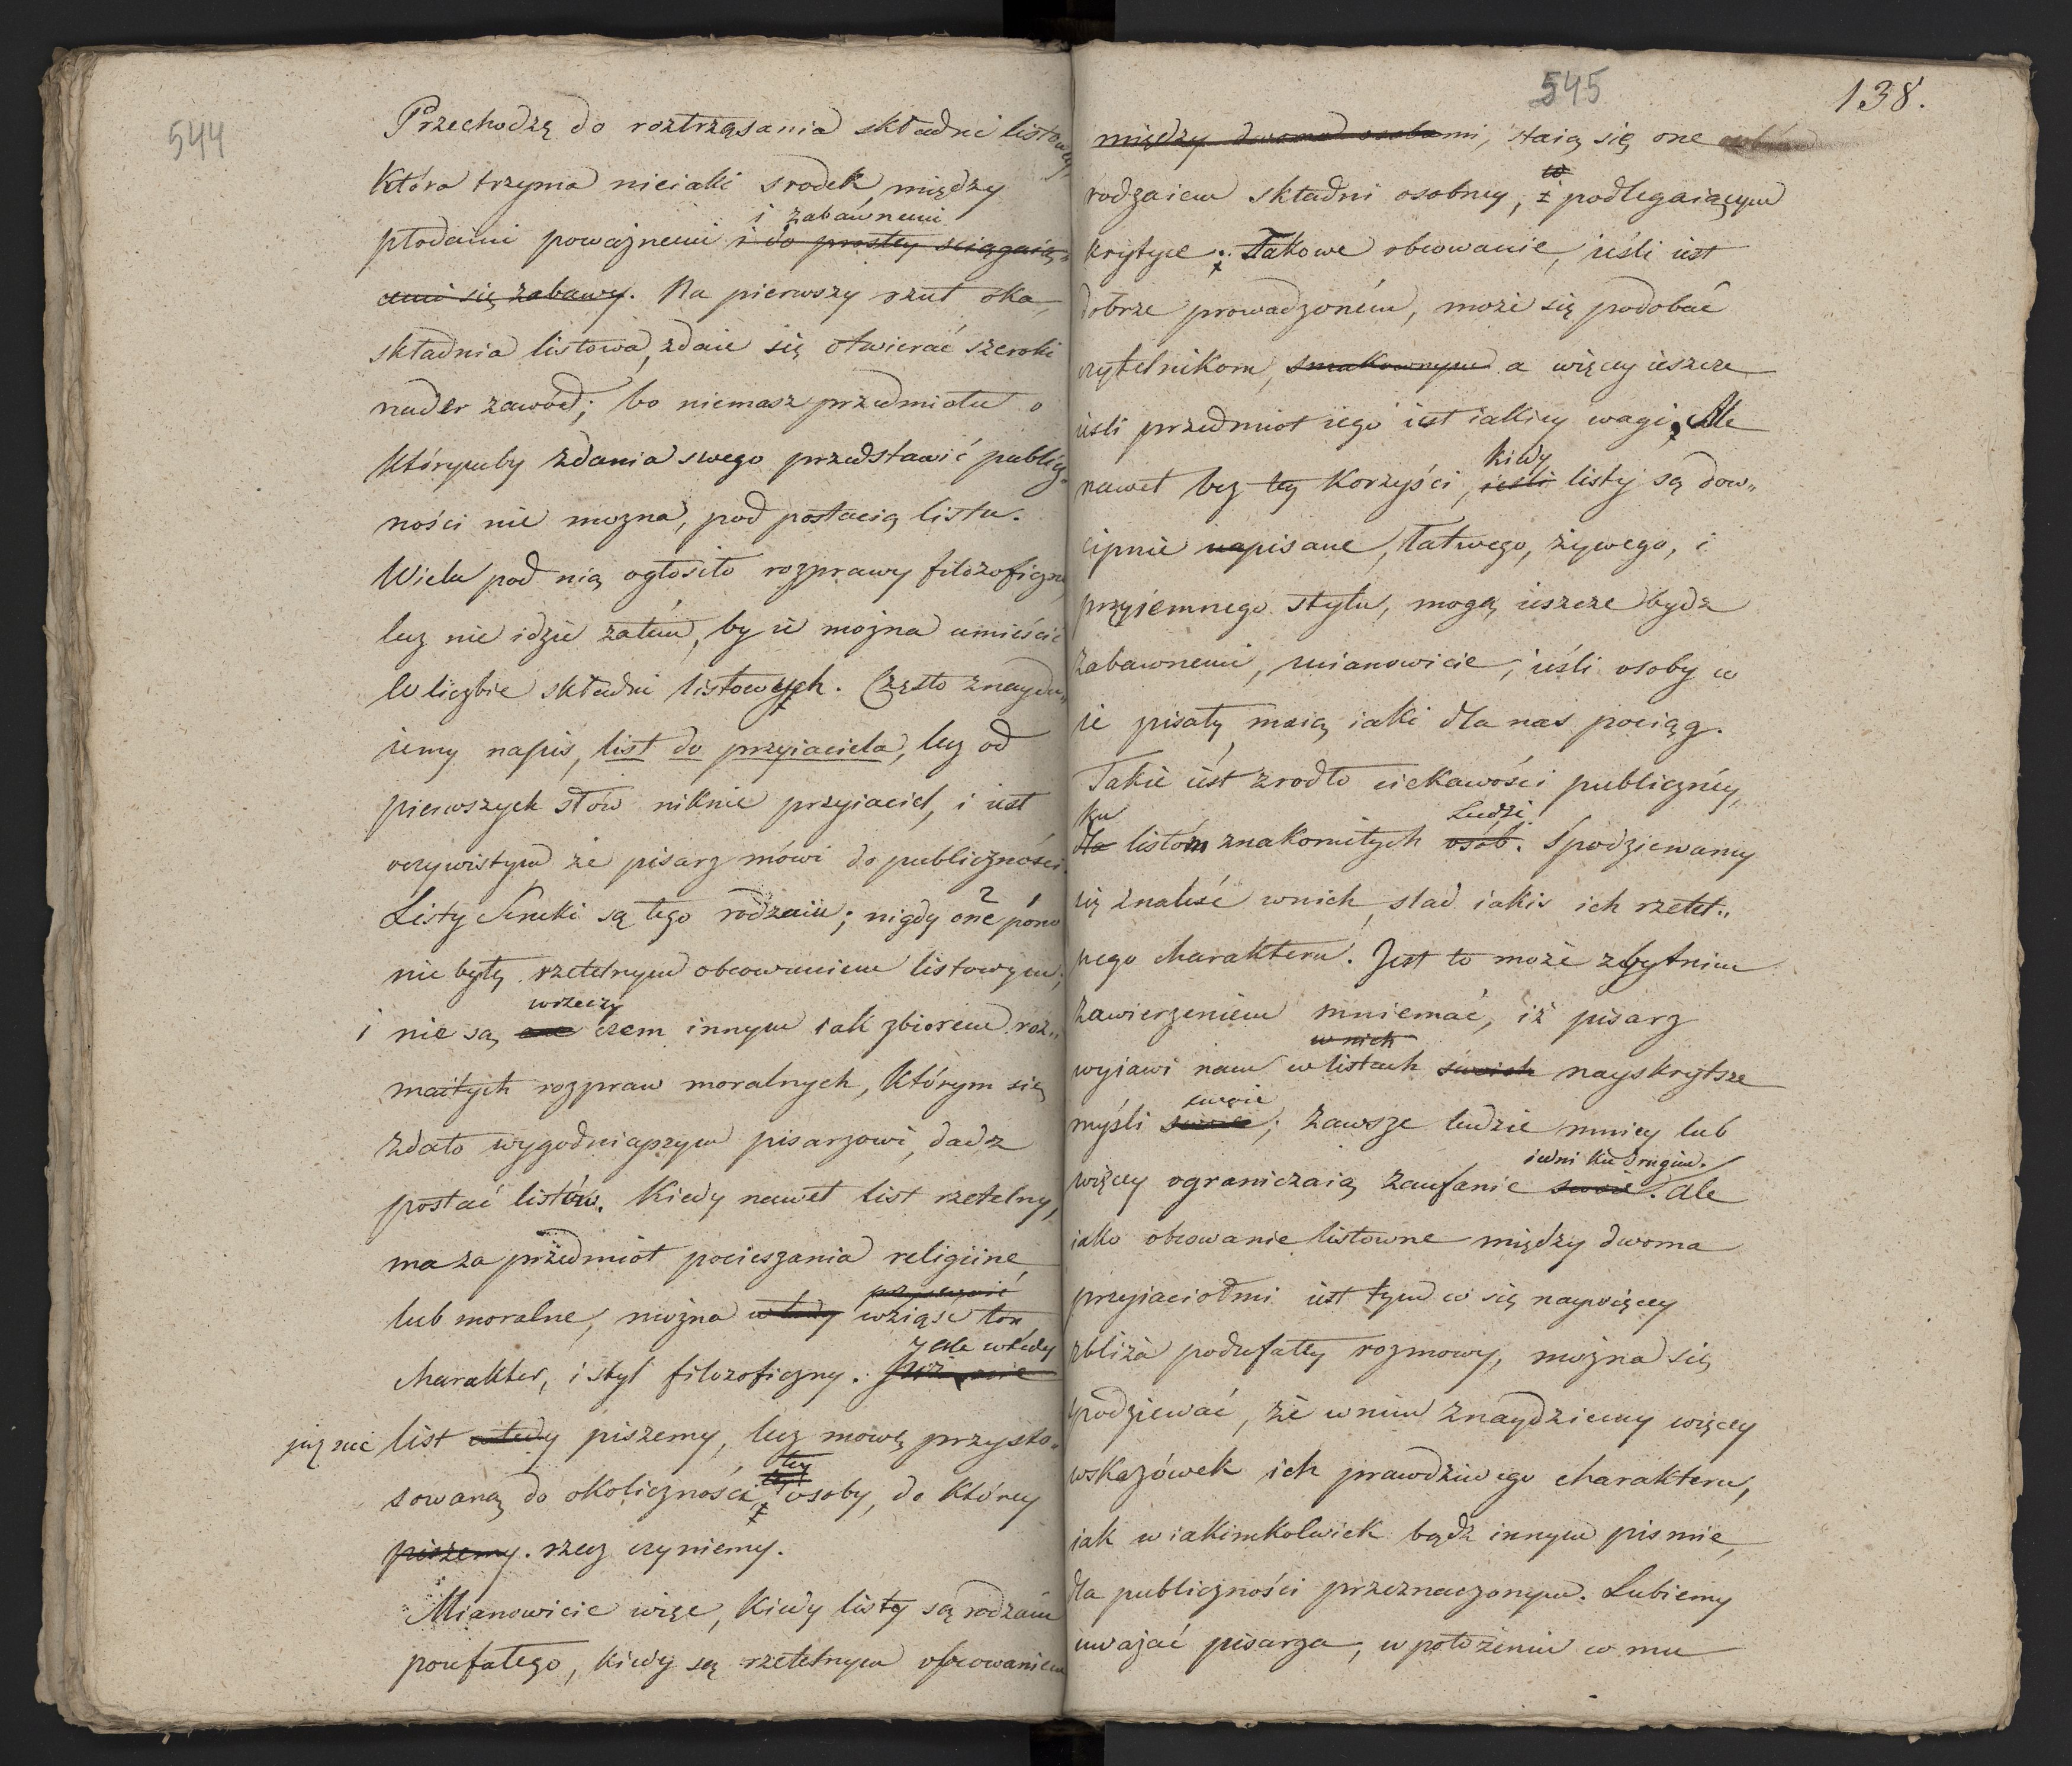 544
Przechodzę do roztrząsania składni listowey,
Która trzyma nieiaki srodek, między
i zabawnemi
płodami poważnemi i do prostey sciągaią„
cemi się zabawy. Na pierwszy rzut oka,
składnia listowa, zdaie się otwierać szeroki
nader zawód; bo niemasz przedmiotu o
którymby zdania swego przedstawić public„
ności nie mozna, pod postacią listu.
Wielu pod nią ogłosiło rozprawy filozoficzne,
lecz nie idzie zatém, by ie można umieścić
W liczbie składni listowych. Często znaydu„
iemy napis, list do przyiaciela, lecz od
pierwszych słów niknie przyiaciel, i iest
oczywistym że pisarz mówi do publiczności.
2 1
Listy Seneki są tego rodzaiu; nigdy one pono
nie były rzetelnym obcowaniem listowym;
wrzeczy
i nie są one czem innym iak zbiorem roz„
maitych rozpraw moralnych, którym się
zdało wygodnieyszym pisarzowi, dadz
postać listów. Kiedy nawet list rzetelny,
ma za przedmiot pocieszania religiine
lub moralne, można wtedy wziąsc ton
y ale wtedy
charakter, i styl filozoficzny.
już nie list wtedy piszemy, lecz mowę przysto„
tey
sowaną do okoliczności, osoby, do którey
piszemy. rzecz czyniemy.
Mianowicie więc, kiedy listy są rodzaiu
poufałego, kiedy są rzetelnym obcowaniem
545
138.
między dwoma osobami, staią się one
w
rodzaiem składni osobney, i podlegaiącym
krytyce. Takowe obcowanie, ieśli iest
dobrze prowadzoném, może się podobać
czytelnikom, smakownym a więcey ieszcze
iesli przedmiot iego iest iakiey wagi. Ale
kiedy
nawet bez tey korzyści, ieśli listy są dow„
cipnie napisane, łatwego, żywego, i
przyiemnego stylu, mogą ieszcze bydz
zabawnemi, mianowicie, ieśli osoby co
ie pisały, maią iaki dla nas pociąg.
Takie iest zrodło ciekawości publiczney,
ku Ludzi
dla listóm znakomitych osób. Spodziewamy
się znaleść wnich, slad iakis ich rzetel„
nego charakteru. Jest to może zbytnim
zawierzeniem mniemać, iż pisarz
w nich
wyiawi nam w listach swoich nayskrytsze
swoie
myśli swoie; zawsze ludzie mniey lub
iedni ku drugim.
więcey ograniczaią zaufanie swoie. ale
iako obcowanie listowne między dwoma
przyiaciołmi iest tym co się naywięcey
zbliża poufałey rozmowy, można się
spodziewać, że wnim znaydziemy więcey
wskazówek ich prawdziwego charakteru,
iak w iakimkolwiek bądz innym pismie,
dla publiczności przeznaczonym. Lubiemy
uważać pisarza, w położeniu co mu